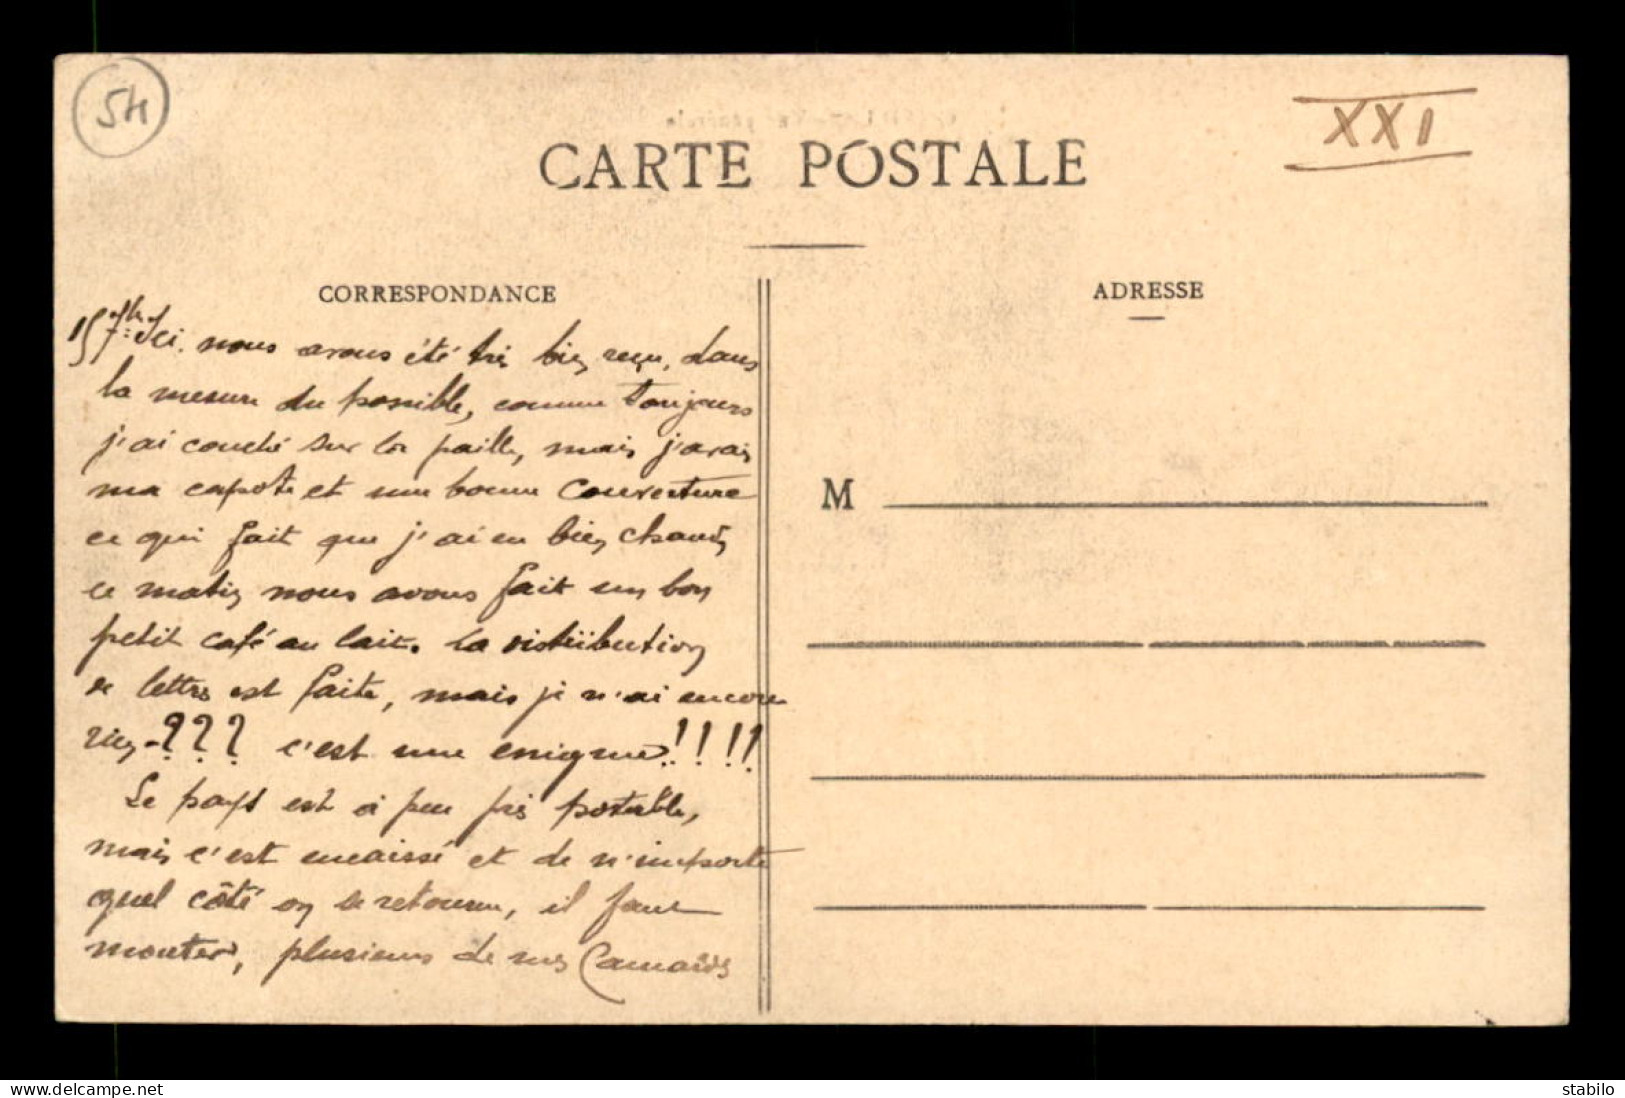 54
XXI
CARTE POSTALE
CORRESPONDANCE
ADRESSE
M
15 7bre Ici nous avons été très bien reçu, dans
la mesure du possible, comme toujours
j'ai couché sur la paille, mais j'avais
ma capote et une bonne couverture
ce qui fait que j'ai eu bien chaud,
ce matin nous avons fait un bon
petit café au lait. La distribution
de lettres est faite, mais je n'ai encore
rien - ??? c'est une enigme !!!!
Le pays est à peu près potable,
mais c'est encaissé et de n'importe
quel côté on se retourne, il faut
monter, plusieurs de mes Camarades
delcampe.net
stabilo